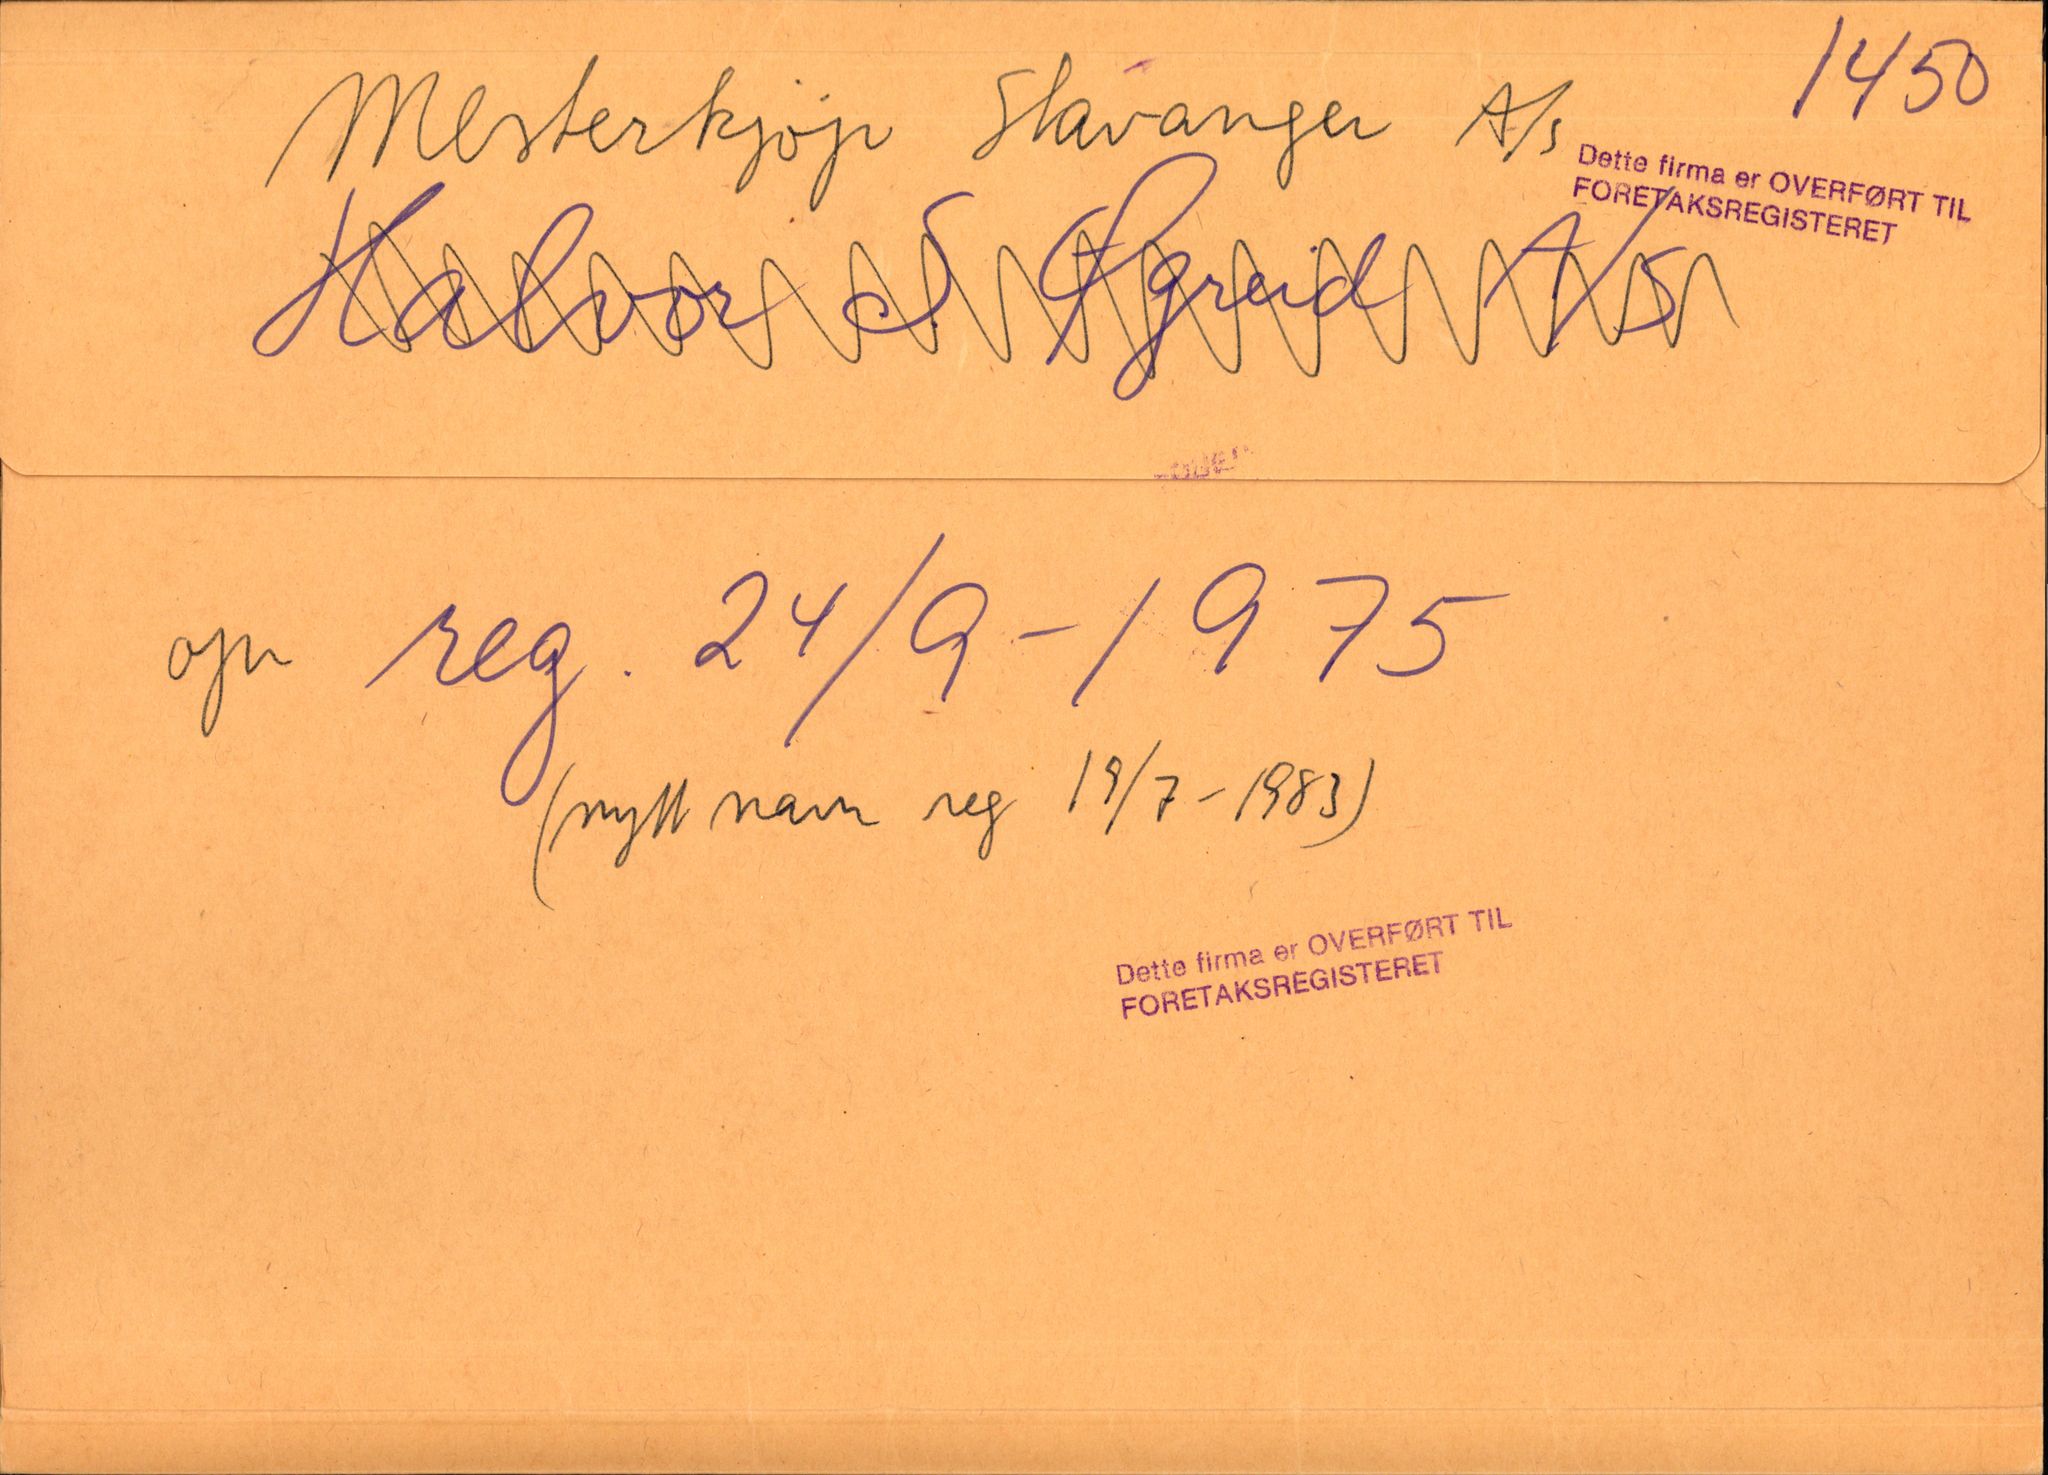 1450
Mesterkjøp Stavanger A/s
Dette firma er OVERFØRT TIL
FORETAKSREGISTERET
Halvor S. Øgreid A/S
opr reg. 24/9-1975
(nytt navn reg 19/7-1983)
Dette firma er OVERFØRT TIL
FORETAKSREGISTERET